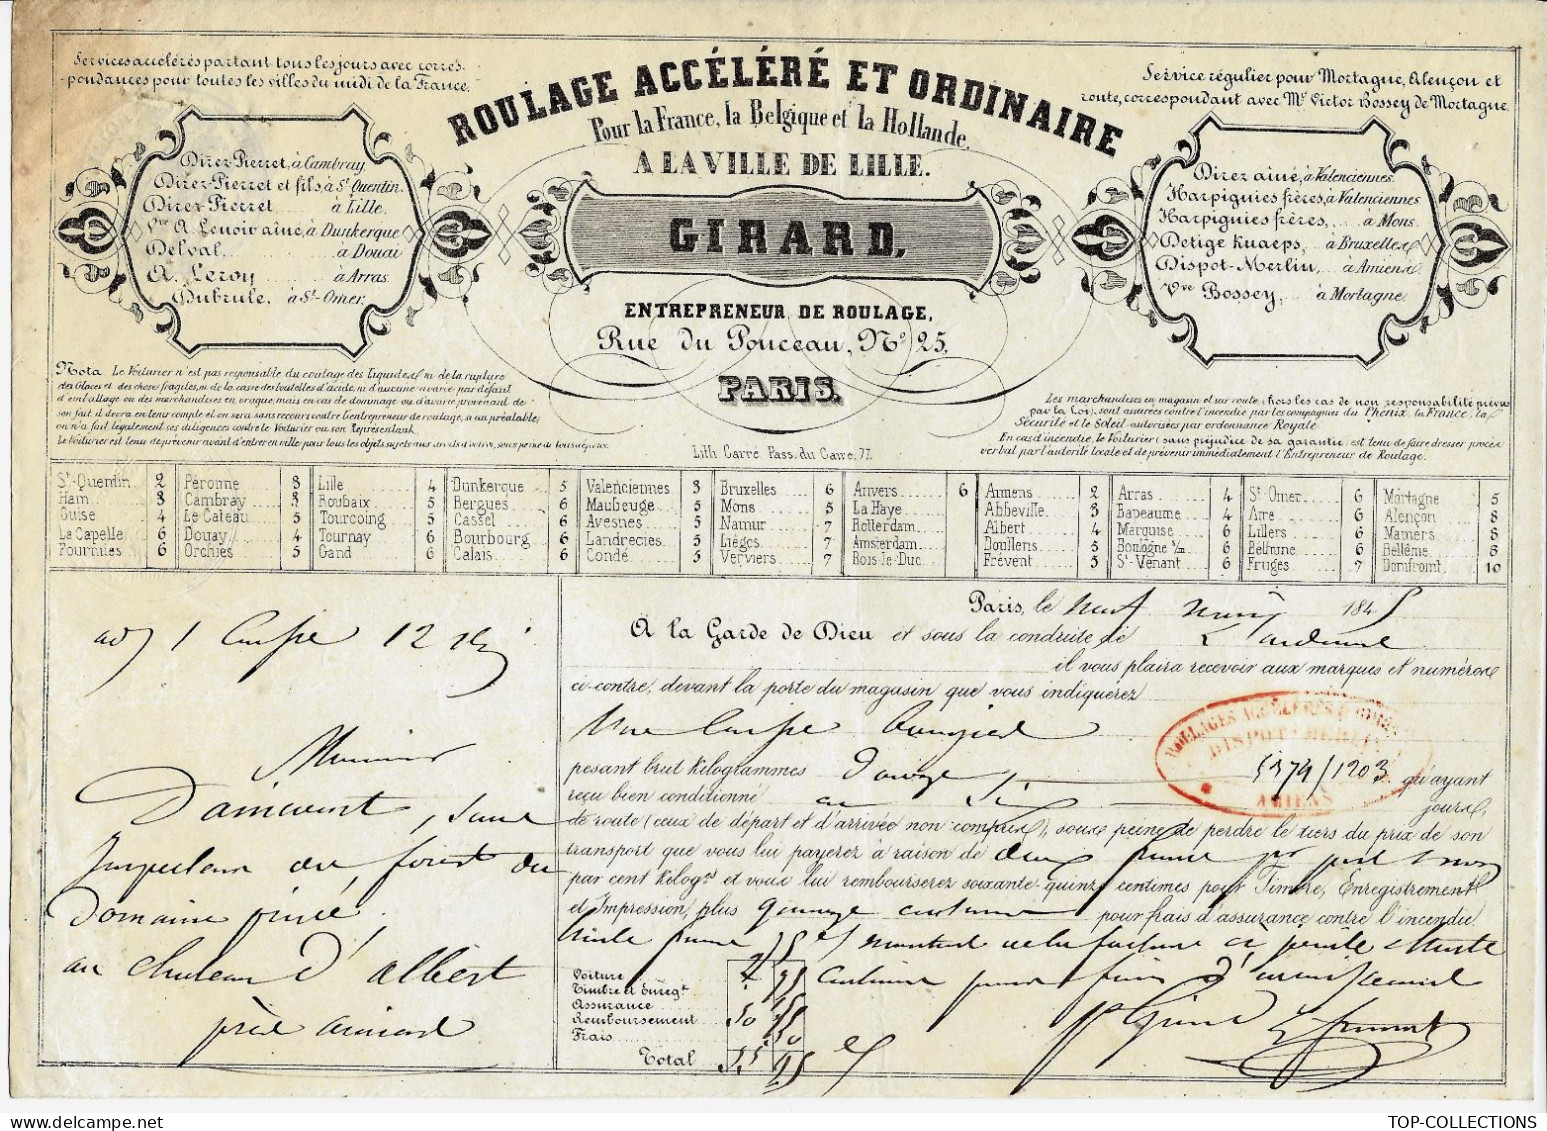 Services accélérés partant tous les jours avec corres-
-pondances pour toutes les villes du midi de la France.
ROULAGE ACCÉLÉRÉ ET ORDINAIRE
Pour la France, la Belgique et la Hollande.
A LA VILLE DE LILLE.
GIRARD,
ENTREPRENEUR DE ROULAGE,
Rue du Ponceau, Nº 25,
PARIS.
Service régulier pour Mortagne, Alençon et
route, correspondant avec Mr Victor Bossey de Mortagne.
Direz-Pierret, à Cambray.
Direz-Pierret et fils, à St Quentin.
Direz-Pierret à Lille.
Vve A. Lenoir ainé, à Dunkerque
Delval, à Douai
A. Leroy à Arras.
Dubrule, à St-Omer.
Direz ainé, à Valenciennes.
Harpignies frères, à Valenciennes
Harpignies frères, à Mons.
Detige Knaeps, à Bruxelles
Dispot-Merlin, à Amiens
Vve Bossey, à Mortagne.
Nota. Le Voiturier n'est pas responsable du coulage des Liquides, ni de la rupture
des Glaces et des choses fragiles, ni de la casse des bouteilles d'acide, ni d'aucune avarie par défaut
d'emballage ou des marchandises en vrague, mais en cas de dommage ou d'avarie provenant de
son fait il devra en tenir compte et on sera sans recours contre l'entrepreneur de roulage, si au préalable,
on n'a fait légalement ses diligences contre le Voiturier ou son Représentant.
Le Voiturier est tenu de prévenir avant d'entrer en ville pour tous les objets sujets aux droits d'octroi, sous peine de
Les marchandises en magasin et sur route (hors les cas de non responsabilité prévus
par la loi), sont assurées contre l'incendie par les compagnies du Phénix, la France, la
Sécurité et le Soleil autorisées par ordonnance Royale.
En cas d'incendie, le Voiturier (sans préjudice de sa garantie) est tenu de faire dresser procès
verbal par l'autorité locale et de prévenir immédiatement l'Entrepreneur de Roulage.
Lith. Carré. Pass. du Caire, 77.
St Quentin 2 Péronne 3 Lille 4 Dunkerque 5 Valenciennes 3 Bruxelles 6 Anvers 6 Amiens 2 Arras 4 St Omer 6 Mortagne 5
Ham 3 Cambray 3 Roubaix 5 Bergues 6 Maubeuge 5 Mons 5 La Haye Abbeville 3 Bapeaume 4 Aire 6 Alençon 8
Guise 4 Le Cateau 5 Tourcoing 5 Cassel 6 Avesnes 5 Namur 7 Rotterdam Albert 4 Marquise 6 Lillers 6 Mamers 8
La Capelle 6 Douay 4 Tournay 6 Bourbourg 6 Landrecies 5 Liéges 7 Amsterdam Doullens 5 Boulogne s/m 6 Béthune 6 Bellême 8
Fourmies 6 Orchies 5 Gand 6 Calais 6 Condé 5 Verviers 7 Bois-le-Duc Frévent 5 St Venant 6 Fruges 7 Domfront 10
Paris, le neuf 1845
A la Garde de Dieu et sous la conduite de
il vous plaira recevoir aux marques et numéros
ci-contre, devant la porte du magasin que vous indiquerez
pesant brut Kilogrammes douze 5374/1203 qu'ayant
reçu bien conditionné au Six jours,
de route (ceux de départ et d'arrivée non-compris), sous peine de perdre le tiers du prix de son
transport que vous lui payerez à raison de deux francs
par cent Kilogs et vous lui rembourserez soixante-quinze centimes pour Timbre, Enregistrement
et Impression, plus quinze centimes pour frais d'assurance contre l'incendie
centimes pour frais d'
Voiture
Timbre et Enregt 75
Assurance 15
Remboursement 50
Frais
Total 55
1 12
Monsieur
Daincourt, Sous
Inspecteur des forêts du
Domaine privé,
au chateau d'Albert
près
ROULAGES ACCÉLÉRÉS &
DISPOT-MERLIN
AMIENS
TOP-COLLECTIONS